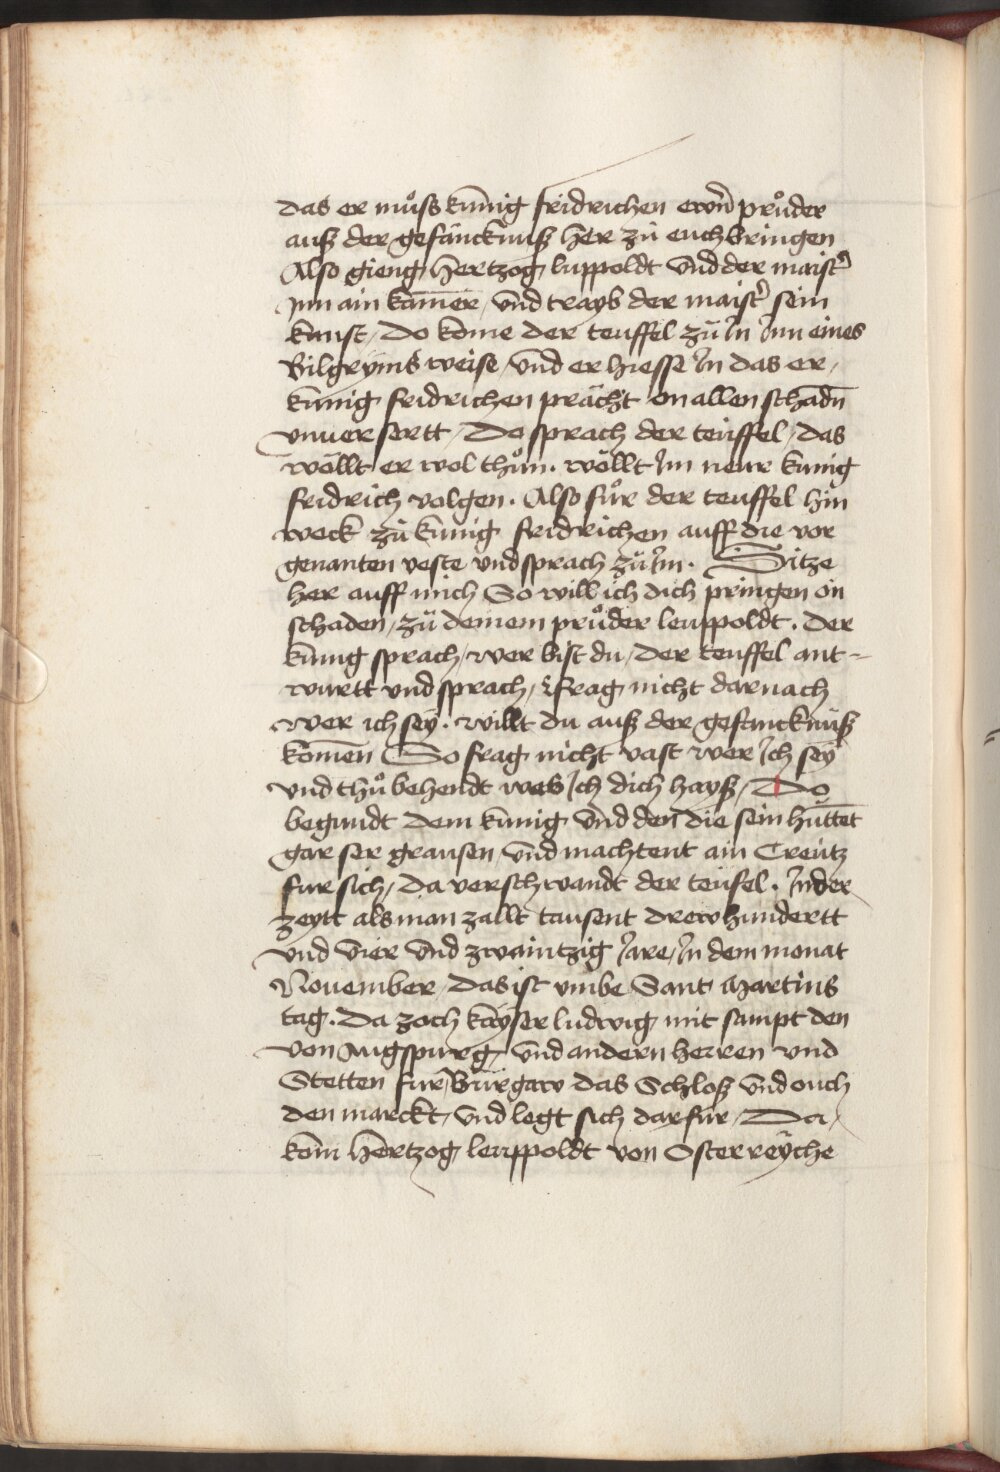 das er muͦss kunnig fridrichen ewrn̄ pruͦder
auß der gefänncknuß her zu euch bringen
Also gieng hertzog luppoldt vnd der maistr̄
Jnn ain kamer / vnd trayb der maistr̄ sein
kunst / do kome der teuffel zu Jn Jnn eines
Bilgryms weise / vnd er hiesse Jn das er /
kunig fridrichen prächt on allen schadn̄
vnuersertt / Do sprach der teuffel / das
wöllt er wol thuͦn . wöllt Jm neur kunig
fridrich volgen . Also fuͦr der teuffel hin
weck zu kunig fridrichen auff die vor
genanten veste vnd sprach zu Jm . Sitze
her auff mich So will ich dich pringen on
schaden / zu deinem pruͦder leuppoldt . der
kunig sprach / wer bist du / der teuffel ant=
wurtt vnd sprach / frag nicht darnach
wer ich sey . willt du auß der gefanncknuß
komen So frag nicht vast wer Jch sey
vnd thuͦ behendt wes Jch dich hayß / Do
begundt dem kunig vnd den die sein huttēt
gar ser grausen vnd machtent ain Creutz
fur sich / da verschwandt der teufel . Jn der
zeytt als man zallt tausent drewhundertt
vnd vier vnd zwaintzig Jare / Jn dem monat
Nouember / das ist vmbe Sant Martins
tag . Da zoch kayser ludwig mit sampt den
von Augspurg / vnd andern herren vnd
Stetten fur Burgaw das Schloß vnd ouch
den marckt / vnd legt sich darfur / Da /
kom hertzog leuppoldt von Osterreyche